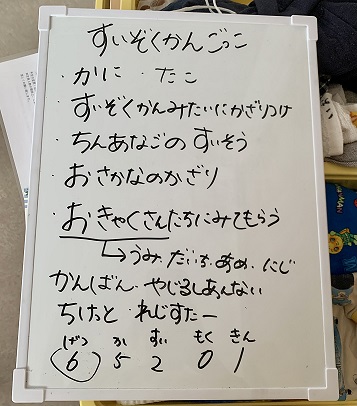 すいぞくかんごっこ
・かに ・たこ
・すいぞくかんみたいにかざりつけ
・ちんあなごのすいそう
・おさかなのかざり
・おきゃくさんたちにみてもらう
→うみ、だいち、あめ、にじ
かんばん・やじるしあんない
ちけっと れじすたー
げつ か すい もく きん
6 5 2 0 1